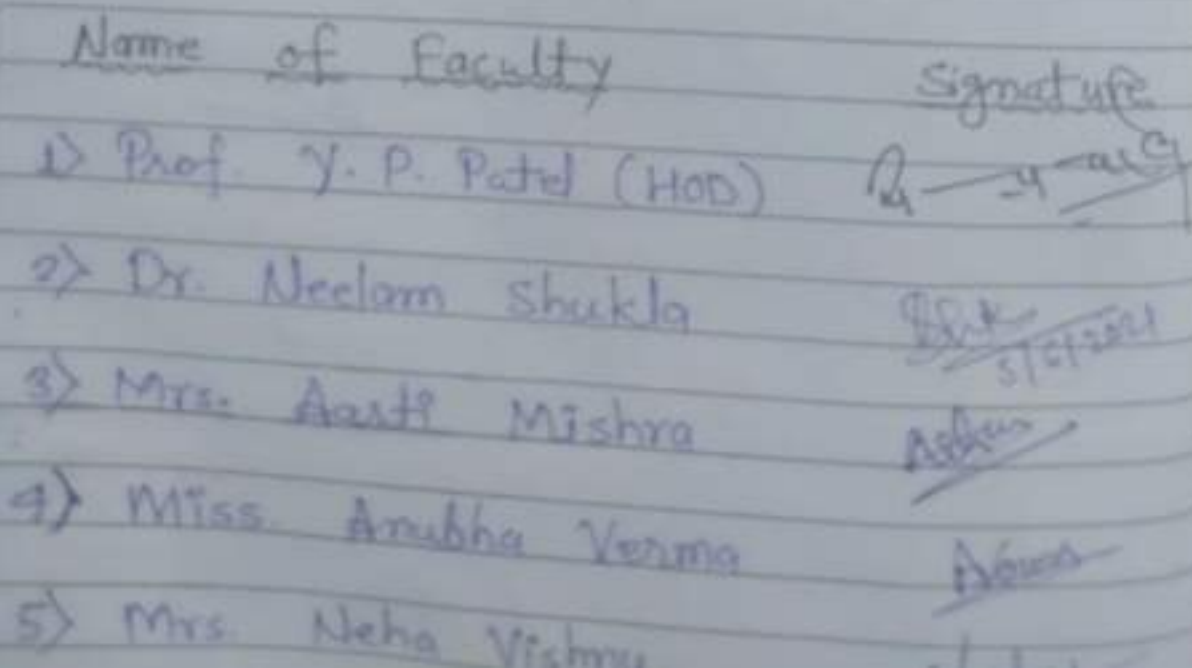 Name of Faculty Signature
1) Prof. Y. P. Patel (HOD)
2) Dr. Neelam Shukla
5/6/2021
3) Mrs. Aarti Mishra
4) Miss. Anubha Verma
5) Mrs. Neha Vishnu